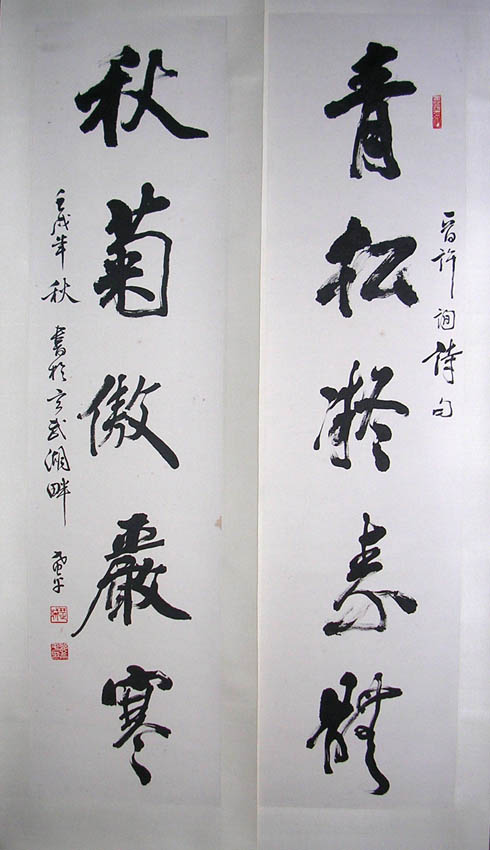 晉許詢詩句
青松凝素體
秋菊傲嚴寒
壬戌年秋 書於玄武湖畔